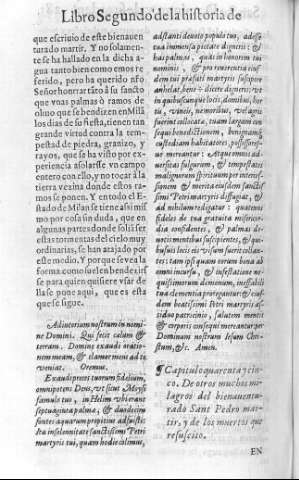 Libro Segundo de la historia de
que escriuio de este bienauen
turado martir. Y no solamen-
te se ha hallado en la dicha a
gua tanto bien como emos re
ferido, pero ha querido nřo
Señor honrar tãto a su sancto
que vnas palmas ò ramos de
oliuo que se bendizen en Milã
los dias de su fiesta, tienen tan
grande virtud contra la tem-
pestad de piedra, granizo, y
rayos, que se ha visto por ex-
periencia asolarse vn campo
entero con ello, y no tocar à la
tierra vezina donde estos ra-
mos se ponen. Y en todo el Es-
tado de Milan se tiene assi mis
mo por cosa sin duda, que en
algunas partes donde solian ser
estas tormentas del cielo muy
ordinarias, se han atajado por
este medio. Y porque se vea la
forma como suelen bendezirse
para quien quisiere vsar de
lla se pone aqui, que es esta
que se sigue.
Adiutorium nostrum in nomi
ne Domini. Qui fecit cœlum &
terram. Domine exaudi oratio-
nem meam, & clamor meus ad te
veniat. Oremus.
Exaudi preces tuorum fidelium,
omnipotens Deus, vt sicut Moysi
famulo tuo, in Helim vbi erant
septuaginta palmæ, & duodecim
fontes aquarum propitius adfuisti:
ita in solennitate sanctissimi Petri
martyris tui, quam hodie colimus,
adstanti deuoto populo tuo, adesse
tua immensa pietate digneris: &
has palmas, quas in honorem tui
nominis, & pro reuerentia eius
dem tui præfati martyris suscipere
anhelat, bene✠dicere digneris: vt
in quibuscunque locis, domibus, hor
tis, vineis, nemoribus, vel agris
fuerint collocatæ, tuam largam con
sequi benedictionem, benignamq́;
custodiam habitatores, possessores-
que mereantur: Atque morsus ad-
uersitas fulgurum, & tempestatis
malignorum spirituum per interces-
sionem & merita eiusdem sanctis-
simi Petri martyris diffugiat, &
ad nihilum redigatur: quatenus
fideles de tua gratuita misericor-
dia confidentes, & palmas de-
uotis mentibus suscipientes, & qui-
busuis locis eis visum fuerit collocan-
tes tam ipsi quam eorum bona ab
omni incursu, & infestatione ne-
quissimorum dæmonum, ineffabili
tua clementia protegantur: & eius-
dem beatissimi Petri martyris as-
siduo patrocinio, salutem mentis
& corporis consequi mereantur: per
Dominum nostrum Iesum Chri
stum, &c. Amen.
¶ Capitulo quarenta y cin-
co. De otros muchos mi-
lagros del bienauentu-
rado Sant Pedro mar-
tir, y de los muertos que
resuscito.
EN